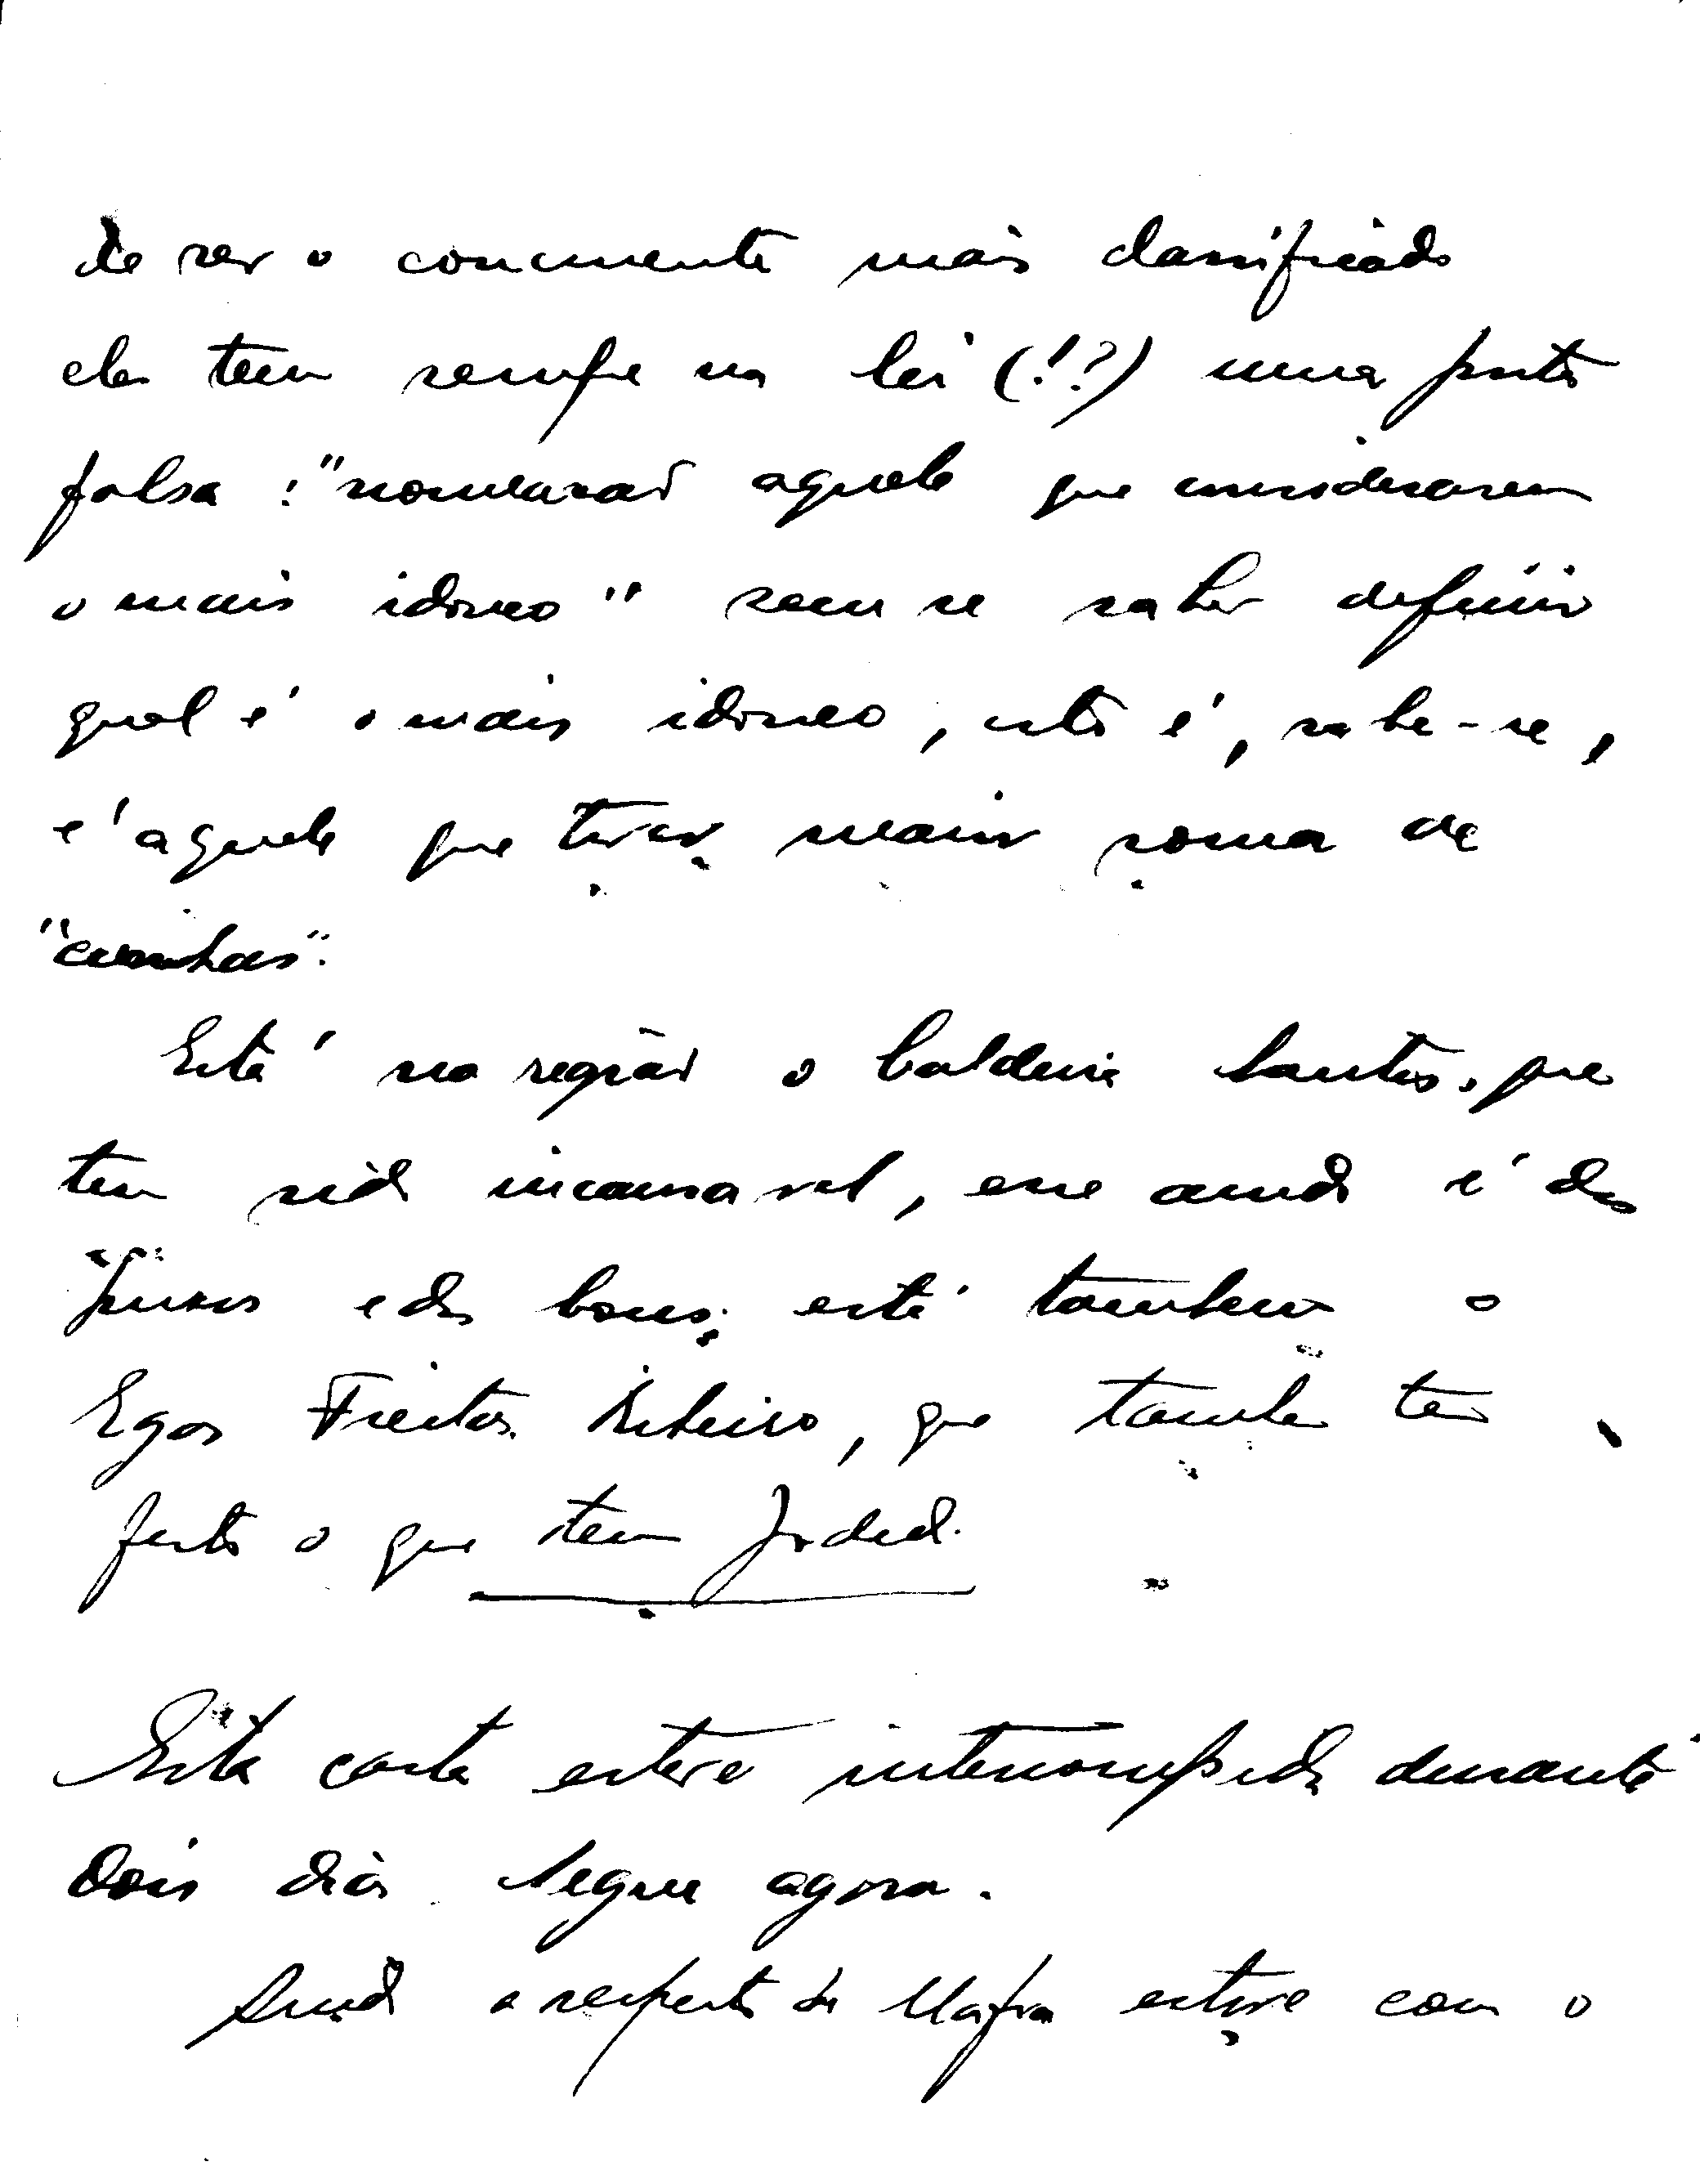 de ser o concorrente mais classificado
eles tem sempre na lei (!?) uma porta
falsa: "nomearão aquele que considerarem
o mais idoneo" sem se saber definir
qual é o mais idoneo, isto é, sabe-se,
é aquele que tiver maior soma de
"cunhas".
Está na região o Caldeira Santos, que
tem sido incansavel, esse ainda é dos
puros e dos bons; está tambem o
Egas Freitas Ribeiro, que tambem tem
feito o que tem podido.
Esta carta esteve interrompida durante
dois dias. Segue agora.
Ainda a respeito de Mafra estive com o